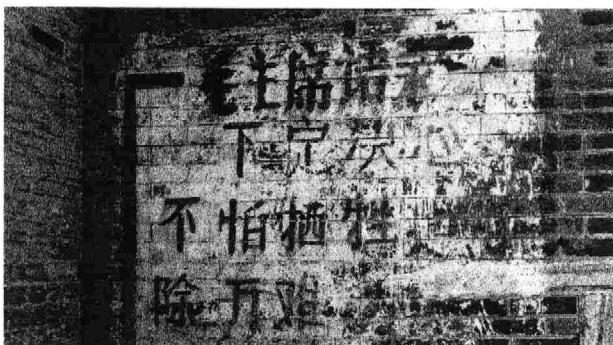 毛主席语录
下定决心
不怕牺牲
除万难